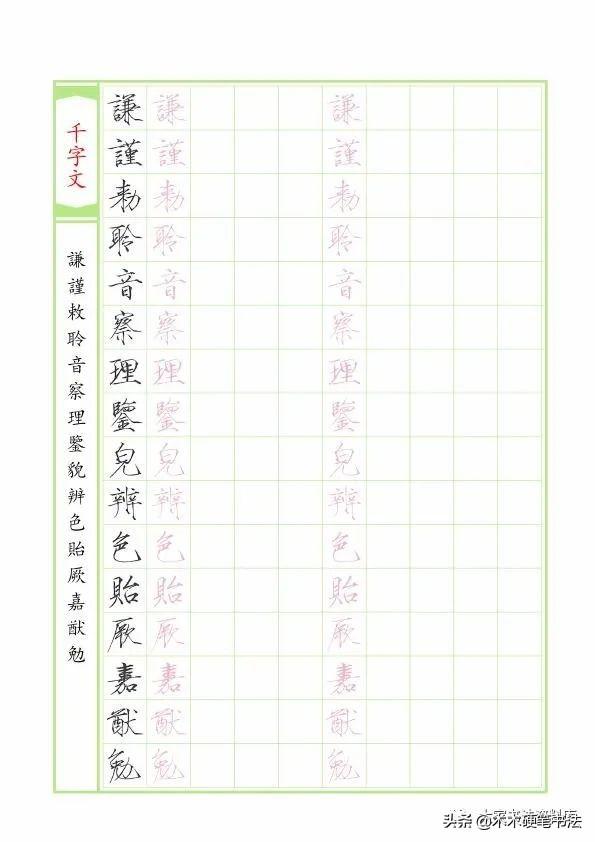 千字文
謙謹敕聆音察理鑒貌辨色貽厥嘉猷勉
謙謹勅聆音察理鑒皃辨色貽厥嘉猷勉
謙謹勅聆音察理鑒皃辨色貽厥嘉猷勉
謙謹勅聆音察理鑒皃辨色貽厥嘉猷勉
头条 @木木硬笔书法